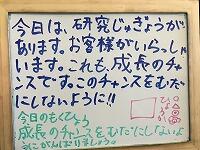 今日は、研究じゅぎょうが
あります。お客様がいらっしゃ
います。これも、成長のチャ
ンスです。このチャンスをむだ
にしないように!!
今日のもくひょう
成長のチャンスをむだにしないよ
うにがんばりましょう。